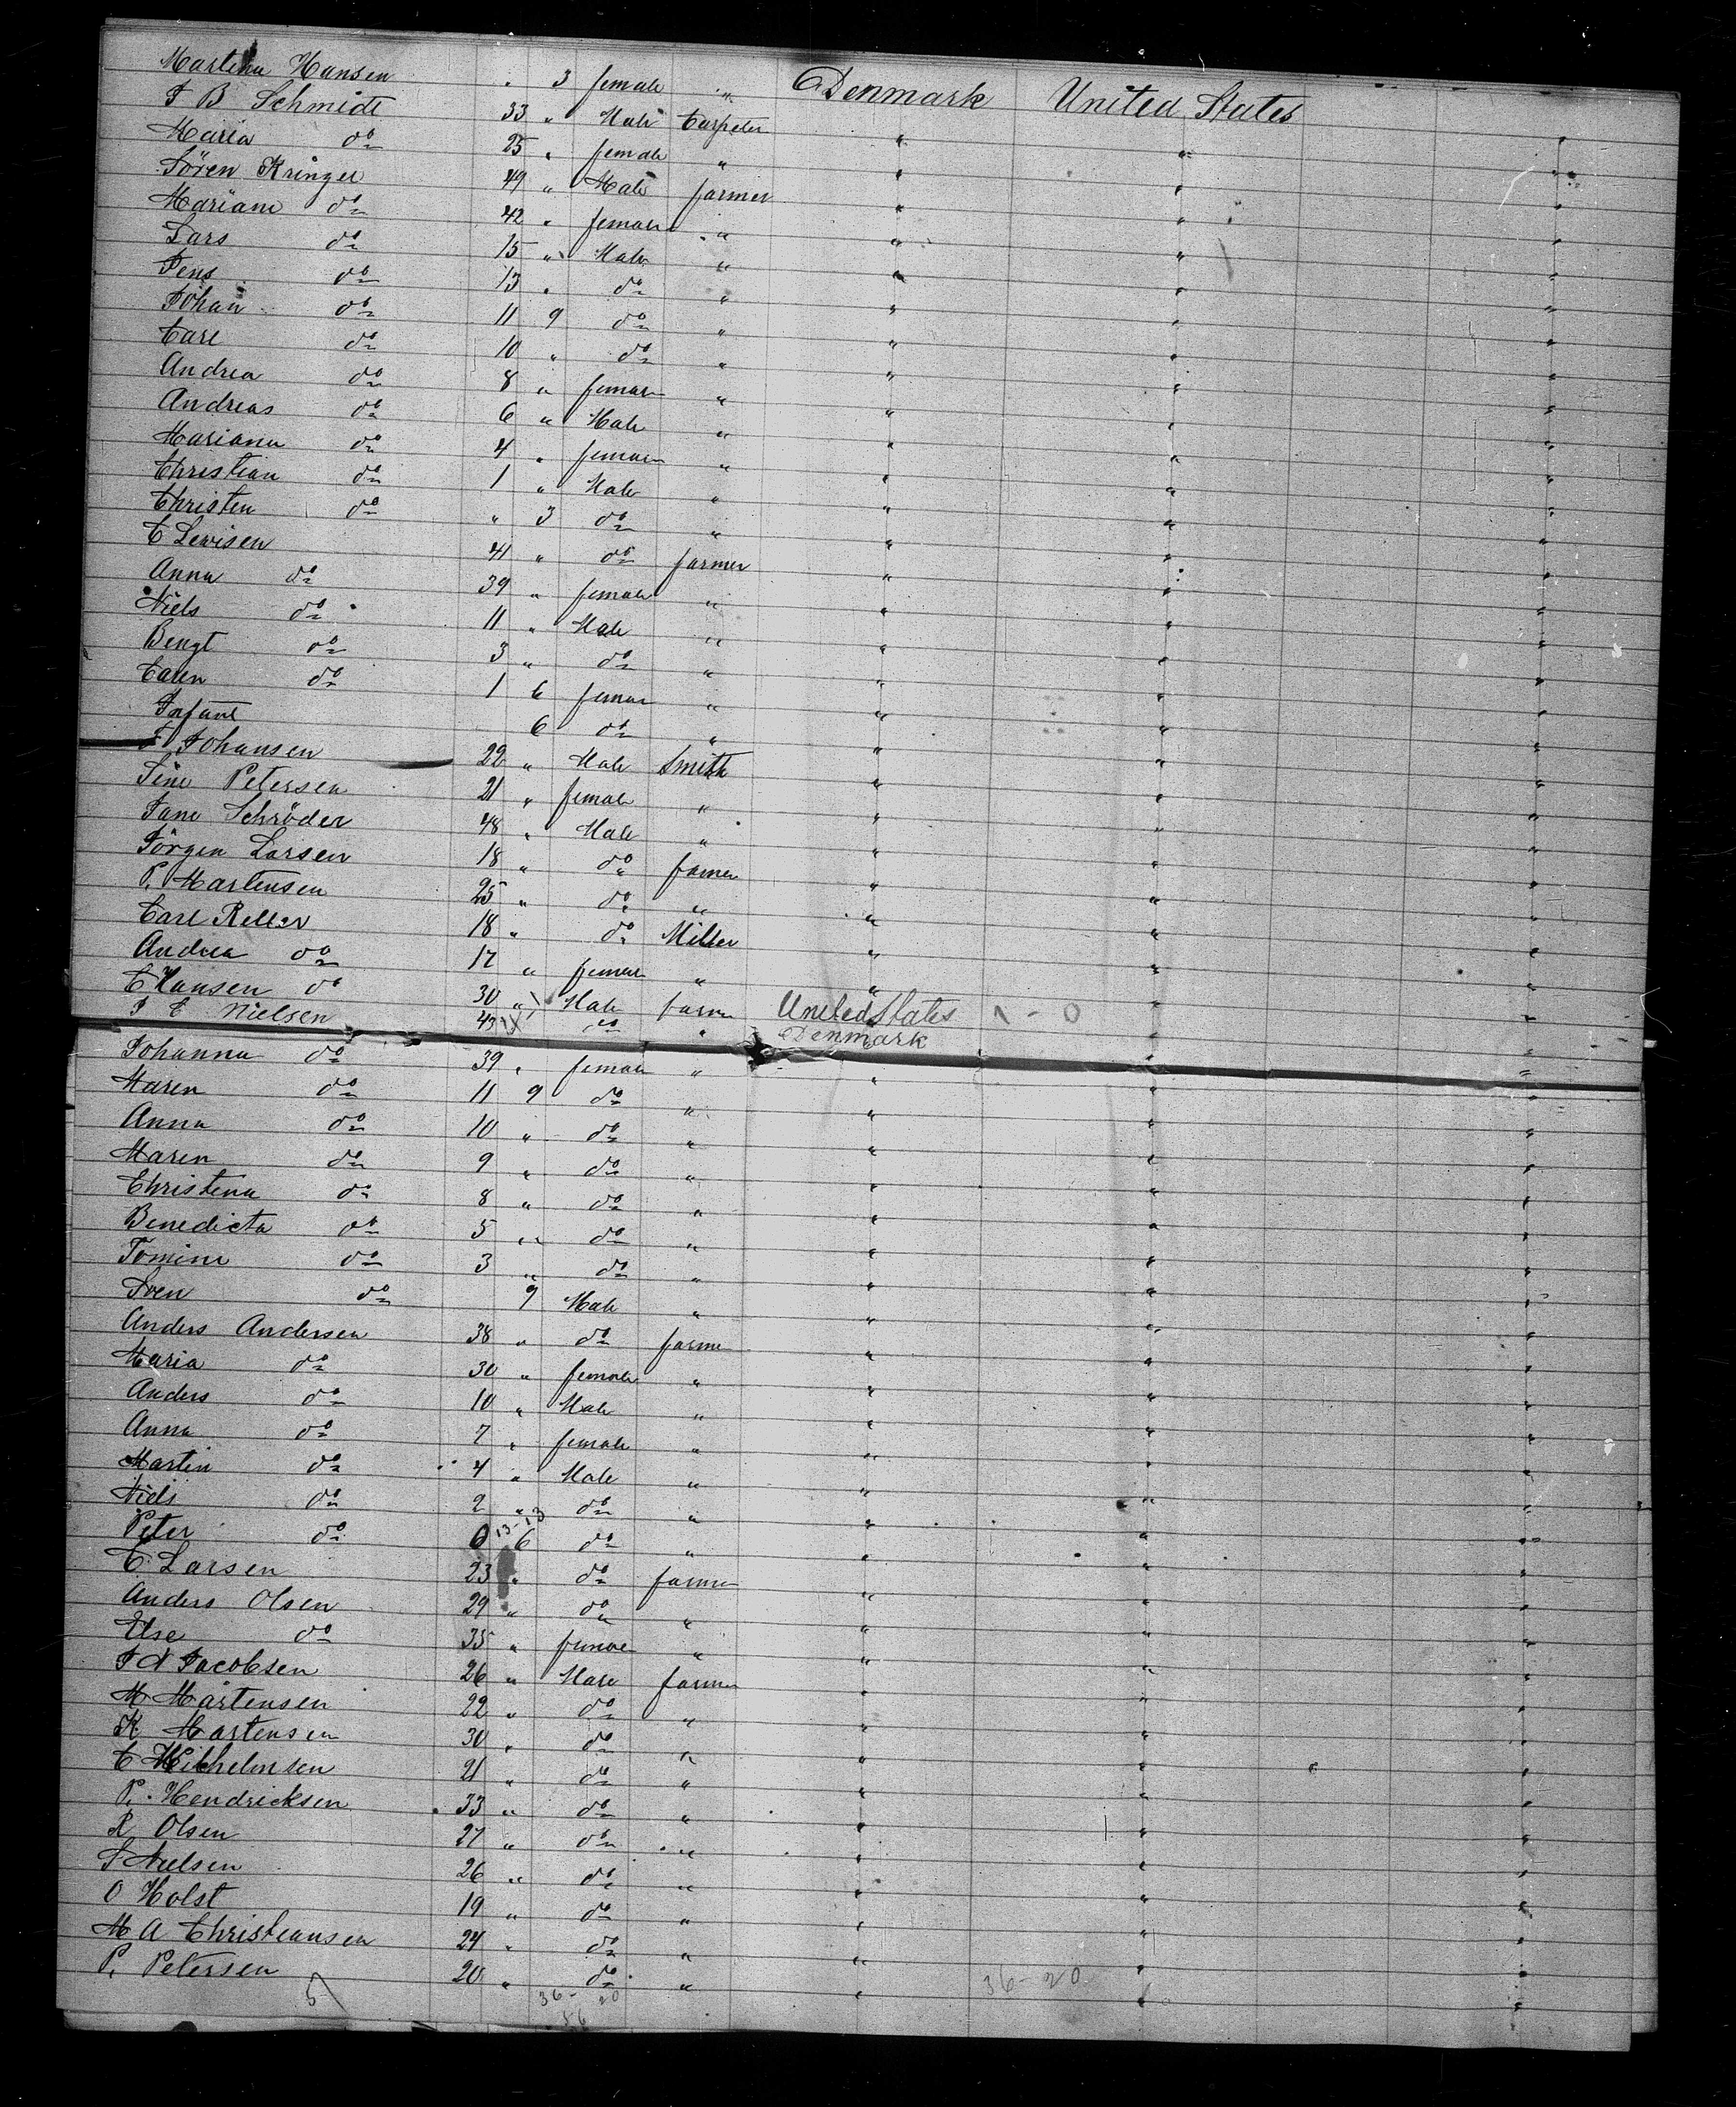 Martina Hansen " 3 female " Denmark United States
J B Schmidt 33 " Male Carpeter " " "
Maria do 25 " female " " " "
Sören Kringel 49 " Male farmer " " "
Mariane do 42 " female " " " "
Lars do 15 " Male " " " "
Jens do 13 " do " " " "
Johan do 11 9 do " " " "
Carl do 10 " do " " " "
Andrea do 8 " female " " " "
Andreas do 6 " Male " " " "
Mariana do 4 " female " " " "
Christian do 1 " Male " " " "
Christen do " 3 do " " " "
C Lewisen 41 " do farmer " " "
Anna do 39 " female " " " "
Niels do 11 " Male " " " "
Bengt do 3 " do " " " "
Caren do 1 6 female " " " "
Infant 6 do " " " "
J Johansen 22 " Male Smith " " "
Sine Petersen 21 " female " " " "
Jane Schröder 48 " Male " " " "
Jörgen Larsen 18 " do farmer " " "
P. Martensen 25 " do " " " "
Carl Reller 18 " do Miller " " "
Andrea do 17 " female " " " "
C Hansen do 30 " Male farmer United States 1 - 0 " "
J C Nielsen 43 do " Denmark " "
Johanna do 39 " female " " " "
Maren do 11 9 do " " " "
Anna do 10 " do " " " "
Maren do 9 " do " " " "
Christena do 8 " do " " " "
Benedicta do 5 " do " " " "
Tomine do 3 " do " " " "
Sven do 9 Male " " " "
Anders Andersen 38 " do farmer " " "
Maria do 30 " female " " " "
Anders do 10 " Male " " " "
Anna do 7 " female " " " "
Martin do 4 " Male " " " "
Niels do 2 " do " " " "
13-13
Peter do 0 6 do " " " "
C. Larsen 23 " do farmer " " "
Anders Olsen 29 " do " " " "
Else do 35 " female " " " "
J N Jacobsen 26 " Male farmer " " "
M Martensen 22 " do " " " "
K Martensen 30 " do " " " "
C Wilhelmsen 21 " do " " " "
P. Hendricksen 33 " do " " " "
R Olsen 27 " do " " " "
S Nielsen 26 " do " " " "
O Holst 19 " do " " " "
M A Christiansen 24 " do " " " "
P. Petersen 20 " do " " " "
36-20 36-20
56